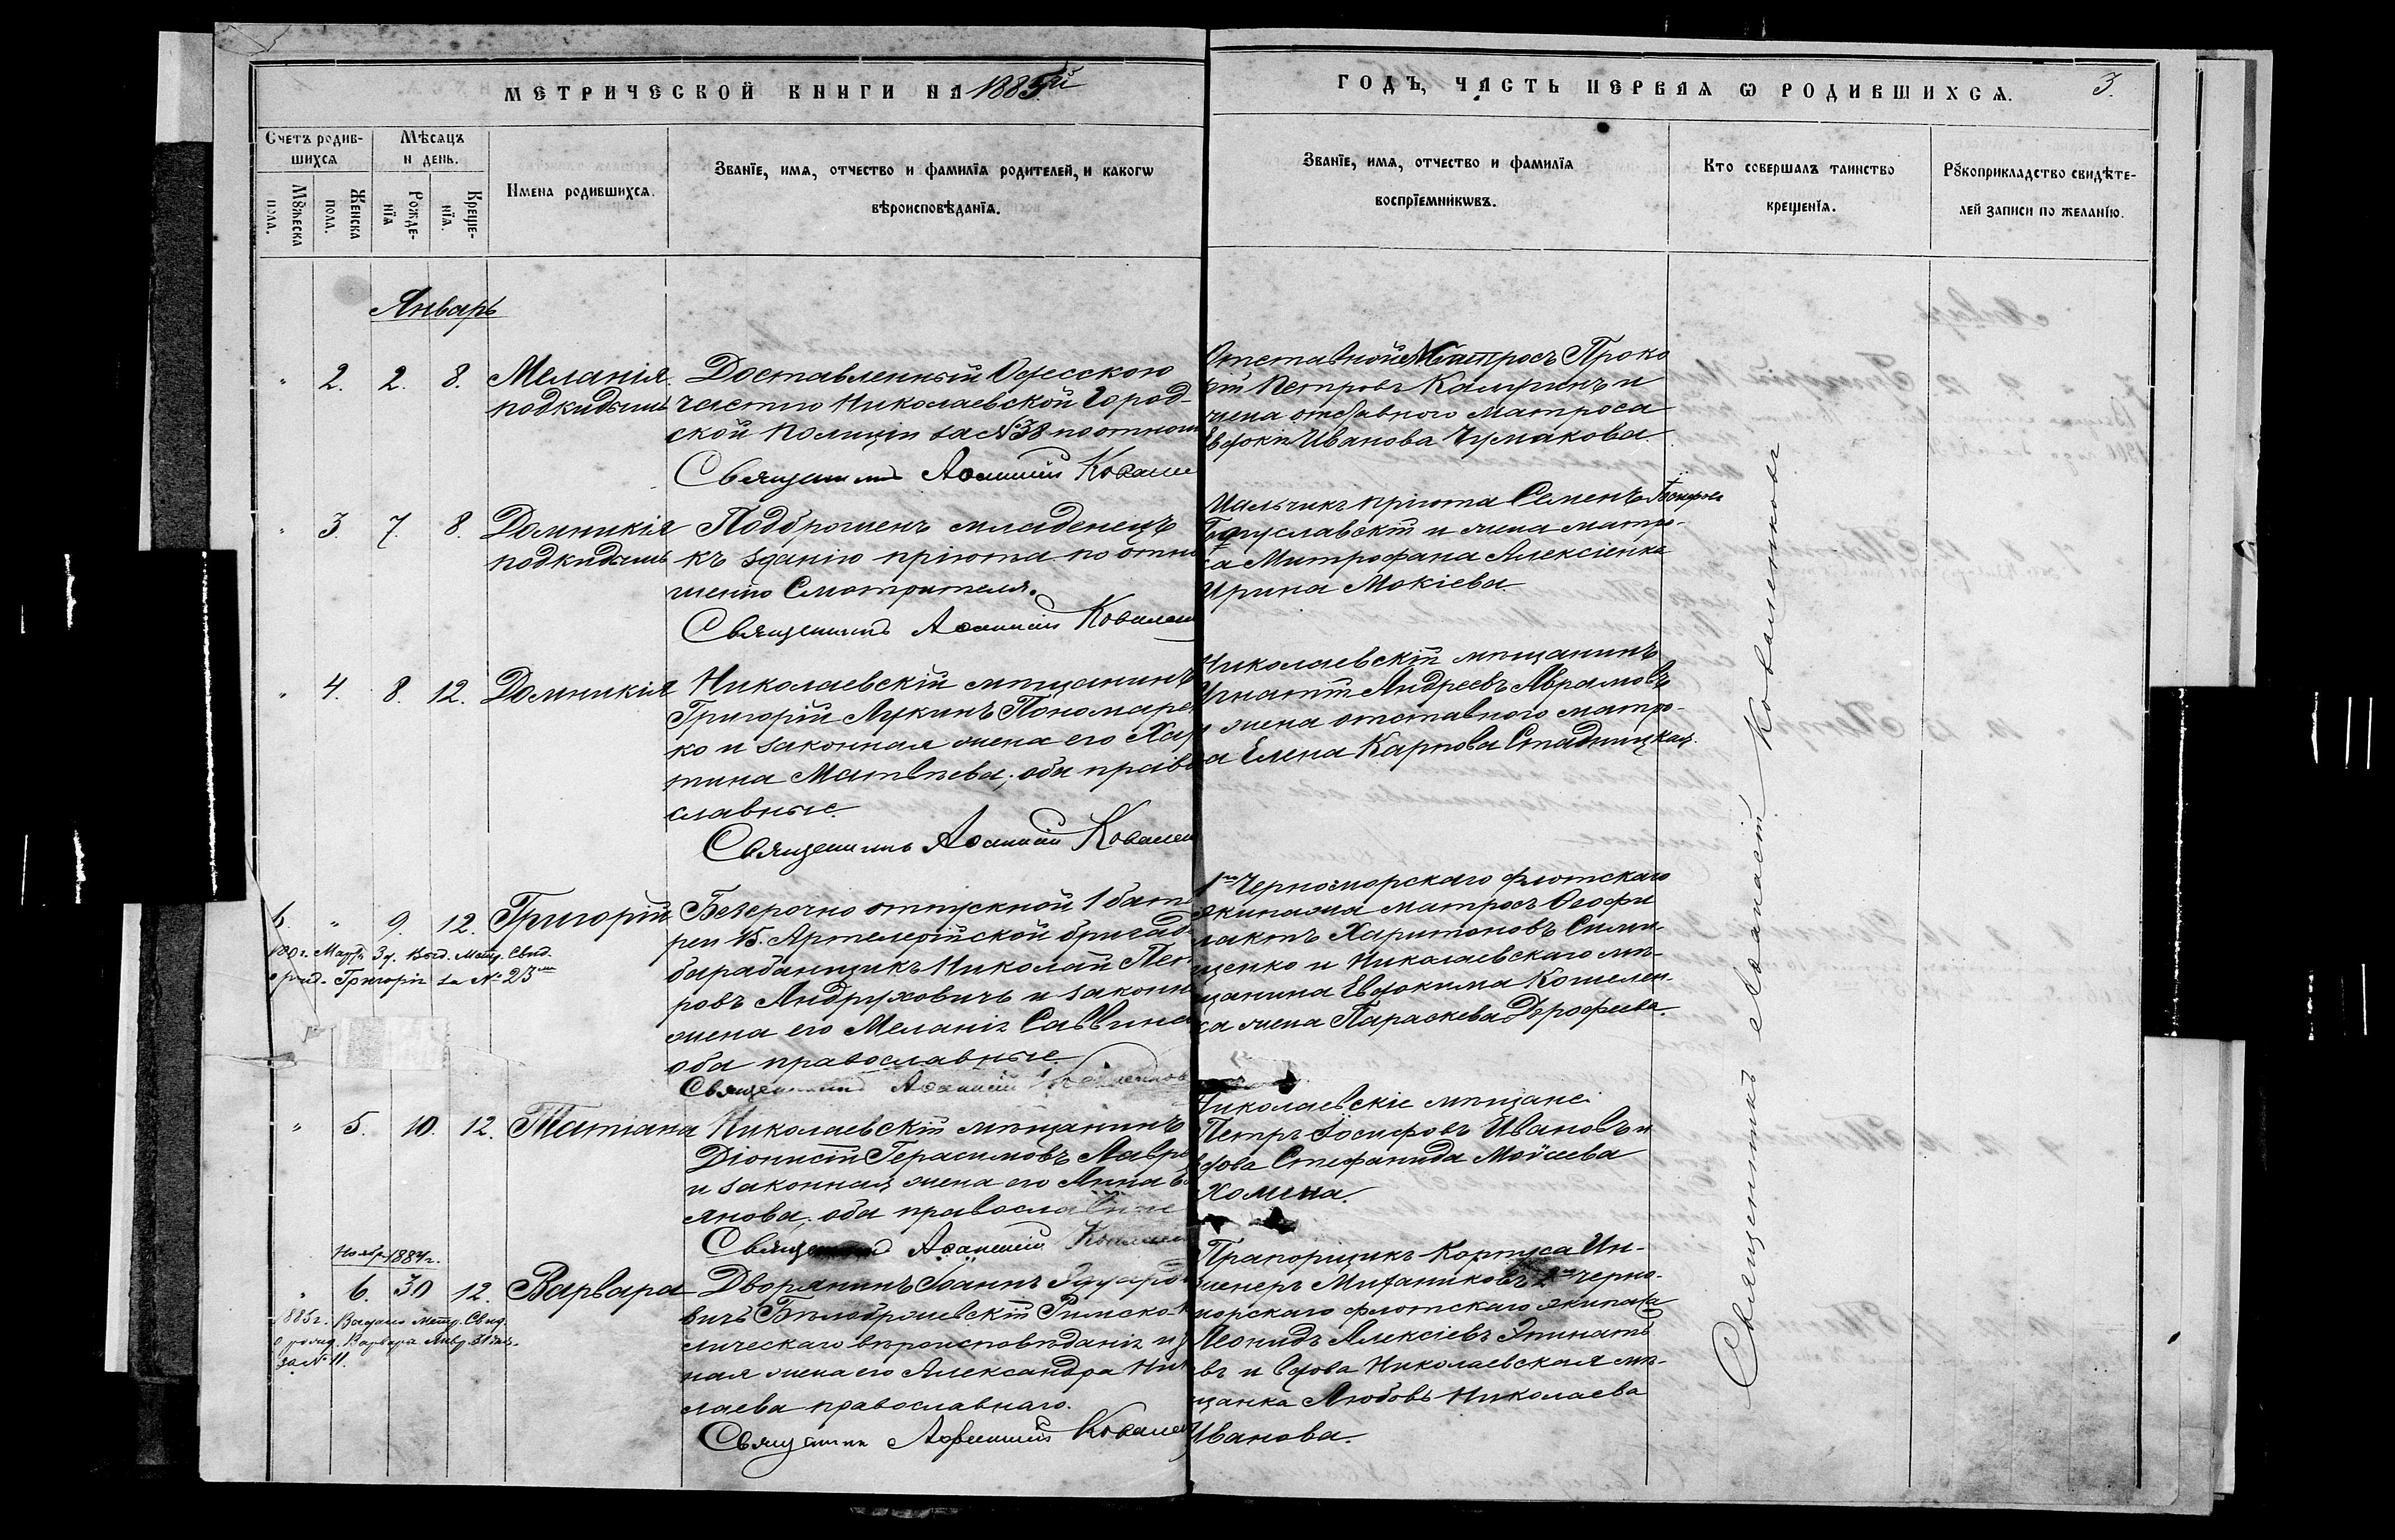 МЕТРИЧЕСКОЙ КНИГИ НА 1885й
ГОДЪ, ЧАСТЬ ПЕРВАЯ Ѡ РОДИВШИХСѦ.
3.
Счетъ родив-
шихсѧ
Мꙋжеска
пола.
Женска
пола.
Мѣсѧцъ
и день.
Рожде-
нїѧ
Креще-
нїѧ.
Имена родившихсѧ.
Званїе, имѧ, отчество и фамилїѧ родителей, и какогѡ
вѣроисповѣданїѧ.
Званїе, имѧ, отчество и фамилїѧ
воспрїемникѡвъ.
Кто совершалъ таинство
крещенїѧ.
Рꙋкоприкладство свидѣте-
лей записи по желанїю.
Январь
" 2. 2. 8. Меланія
подкидышъ
Доставленный Одесскою
частію Николаевской Город-
ской Полиціи за № 38 по отнош
Священникъ Аѳанасій Ковале
Отставной Матросъ Проко
пій Петровъ Калринъ и
жена отставного матроса
Евдокія Иванова Чумакова.
" 3. 7. 8. Домникія
подкидышъ
Подброшенъ младенецъ
къ зданію пріюта по отно
шенію Смотрителя.
Священникъ Аѳанасій Ковален
Мальчикъ пріюта Семенъ
Богуславскій и жена матро-
са Митрофана Алексіенка
Ирина Мокіева.
" 4. 8. 12. Домникія
Николаевскій мѣщанинъ
Григорій Лукинъ Пономарен
ко и законная жена его Хар
тина Матвѣева; оба право
славные.
Священникъ Аѳанасій Ковален
Николаевскій мѣщанинъ
Игнатій Андреевъ Аврамовъ
и жена отставного матро-
са Елена Карпова Стадницкая.
6. " 9. 12. Григорій
Марта 3 д. Выд. Метр. Свид.
о рожд. Григорія за № 23
Безсрочно отпускной 1 бата
реи 15. Артелерійской бригады
барабанщикъ Николай Пет
ровъ Андруховичъ и законн
жена его Меланія Саввина
оба православные.
Священникъ Аѳанасій
1го Черноморскаго флотскаго
экипажа матросъ Ѳеофи
лактъ Харитоновъ Сими-
щенко и Николаевскаго мѣ-
щанина Евдокима Кошелен-
ка жена Параскева Дорофеева.
" 5. 10. 12. Татіана
Николаевскій мѣщанинъ
Діонисій Герасимовъ Лавре
и законная жена его Анна
янова, оба православные
Священникъ Аѳанасій
Николаевскіе мѣщане:
Петръ Іосифовъ Ивановъ и
вдова Стефанида Моисеева
Хомина.
Ноябр. 1884 г.
" 6. 30 12. Варвара
1885 г. Выдано Метр. Свид.
о рожд. Варвары Янв. 31 дня.
за № 11.
Дворянинъ Іоаннъ Эдуардо
вичъ Бѣлобржевскій Римско-к
лическаго вѣроисповѣданія и з
ная жена его Александра Ник
лаева православнаго.
Священникъ Аѳанасій Ковален
Прапорщикъ Корпуса Ин-
женеръ Механиковъ 2го Черно-
морскаго флотскаго экипажа
Леонидъ Алексіевъ Эпинать
въ и вдова Николаевская мѣ-
щанка Любовь Николаева
Иванова.
Священникъ Аѳанасій Коваленковъ